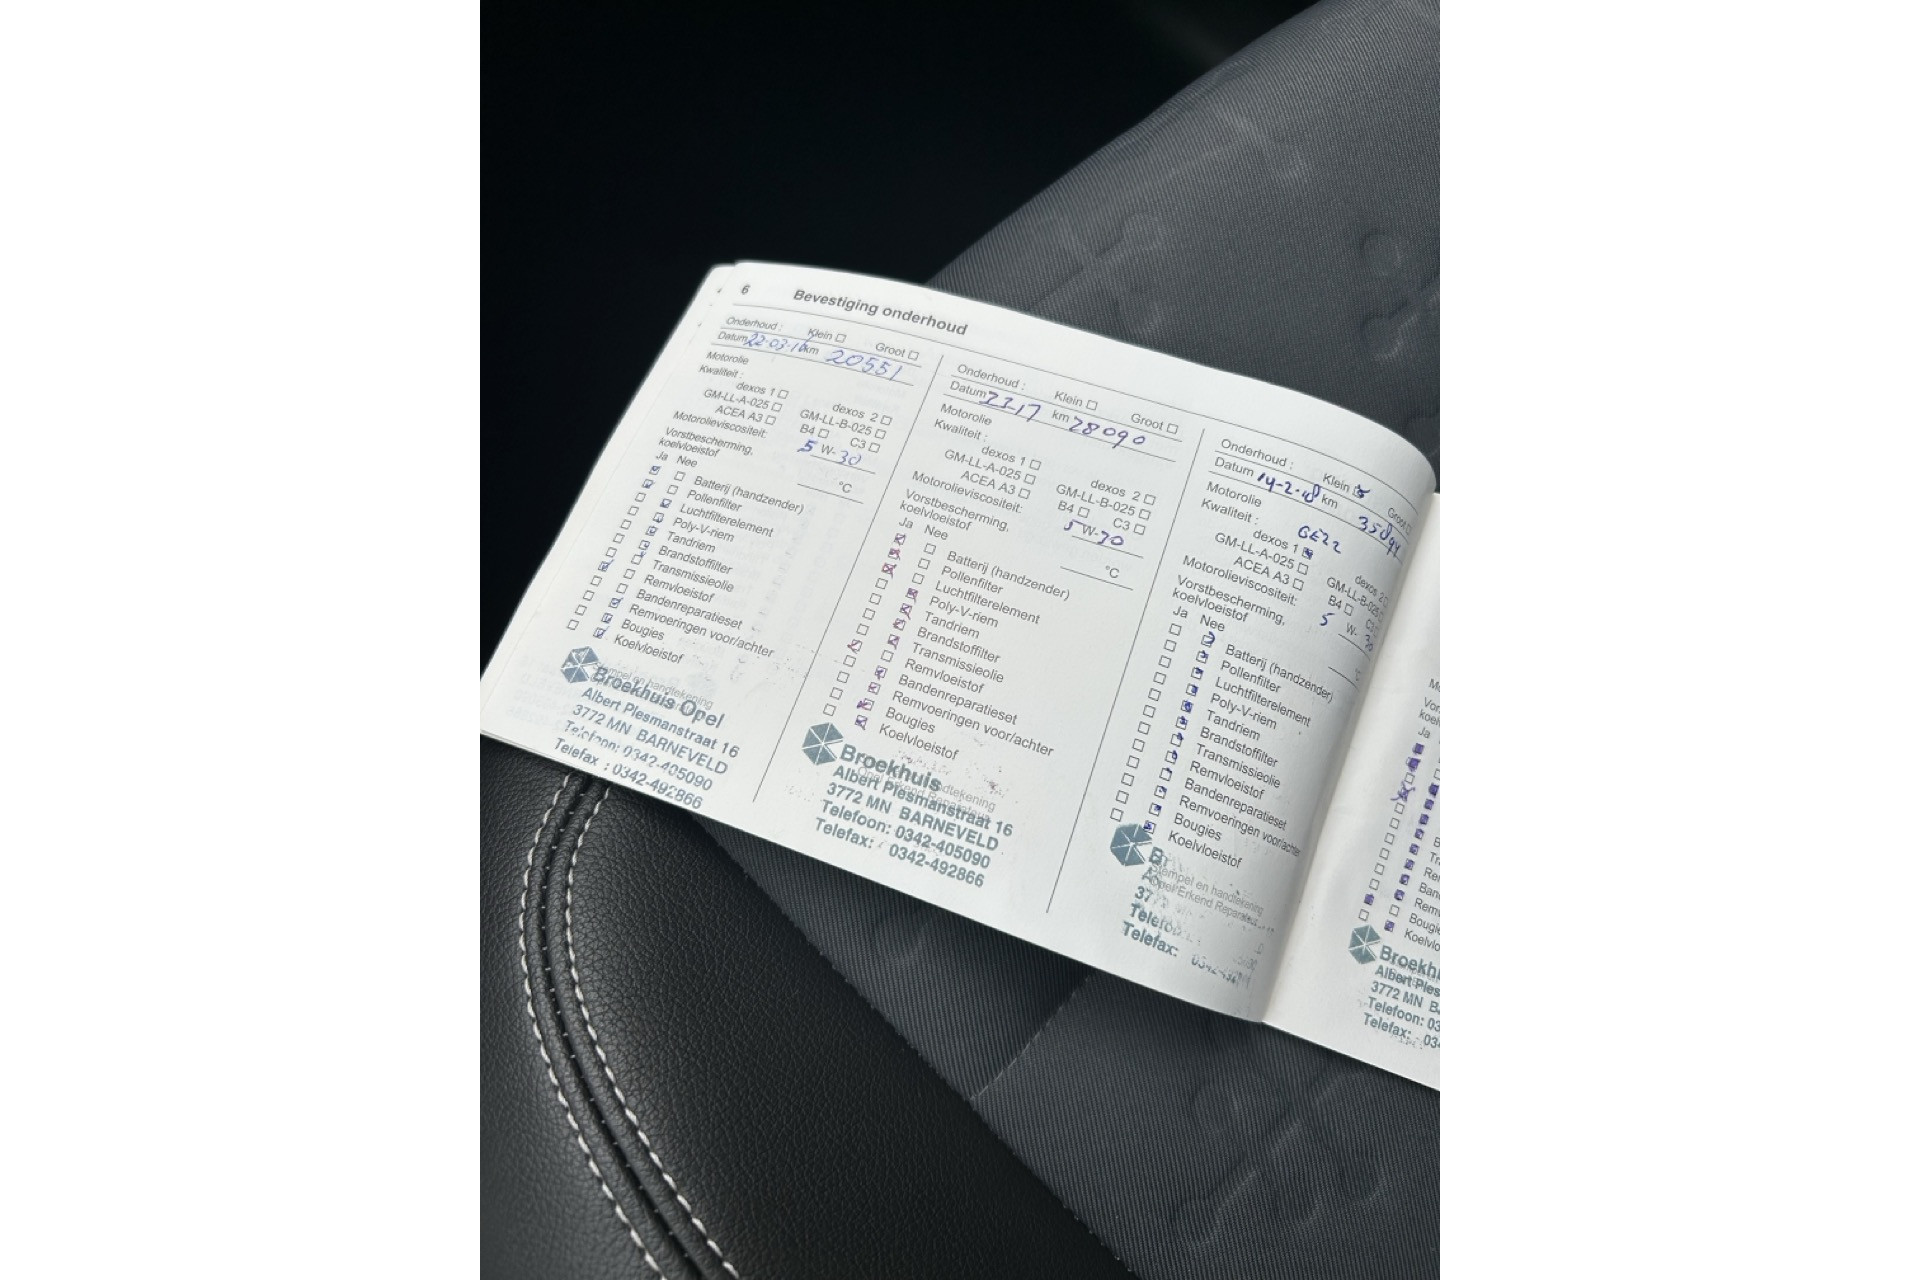 6 Bevestiging onderhoud
Onderhoud : Klein Groot
Datum 22-03-16 km 20551
Motorolie
Kwaliteit :
dexos 1 dexos 2
GM-LL-A-025 GM-LL-B-025
ACEA A3 B4 C3
Motorolieviscositeit: 5 W-30
Vorstbescherming,
koelvloeistof °C
Ja Nee
Batterij (handzender)
Pollenfilter
Luchtfilterelement
Poly-V-riem
Tandriem
Brandstoffilter
Transmissieolie
Remvloeistof
Bandenreparatieset
Remvoeringen voor/achter
Bougies
Koelvloeistof
Stempel en handtekening
Broekhuis Opel
Albert Plesmanstraat 16
3772 MN BARNEVELD
Telefoon: 0342-405090
Telefax : 0342-492866
Onderhoud : Klein Groot
Datum km 28090
Motorolie
Kwaliteit :
dexos 1 dexos 2
GM-LL-A-025 GM-LL-B-025
ACEA A3 B4 C3
Motorolieviscositeit: 5 W-30
Vorstbescherming,
koelvloeistof °C
Ja Nee
Batterij (handzender)
Pollenfilter
Luchtfilterelement
Poly-V-riem
Tandriem
Brandstoffilter
Transmissieolie
Remvloeistof
Bandenreparatieset
Remvoeringen voor/achter
Bougies
Koelvloeistof
Broekhuis
Albert Plesmanstraat 16
3772 MN BARNEVELD
Telefoon: 0342-405090
Telefax: 0342-492866
Onderhoud : Klein Groot
Datum 14-2-18 km 35894
Motorolie
Kwaliteit :
dexos 1 dexos 2
GM-LL-A-025 GM-LL-B-025
ACEA A3 B4 C3
Motorolieviscositeit: 5 W- 30
Vorstbescherming,
koelvloeistof
Ja Nee
Batterij (handzender)
Pollenfilter
Luchtfilterelement
Poly-V-riem
Tandriem
Brandstoffilter
Transmissieolie
Remvloeistof
Bandenreparatieset
Remvoeringen voor/achter
Bougies
Koelvloeistof
Stempel en handtekening
Opel Erkend Reparateur
Telefax:
Ja
Broekhu
Albert Ples
3772 MN B
Telefoon: 03
Telefax: 034